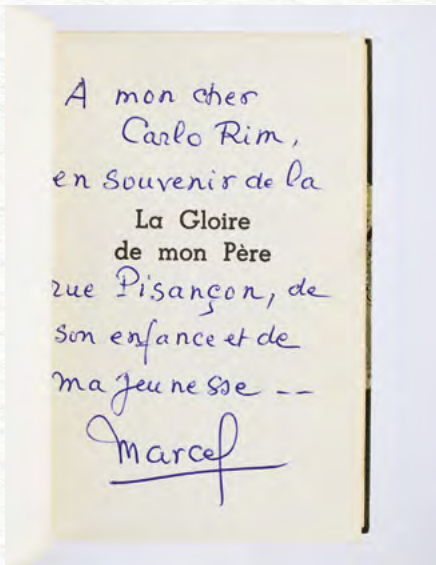 A mon cher
Carlo Rim,
en souvenir de la
La Gloire
de mon Père
rue Pisançon, de
son enfance et de
ma jeunesse --
Marcel